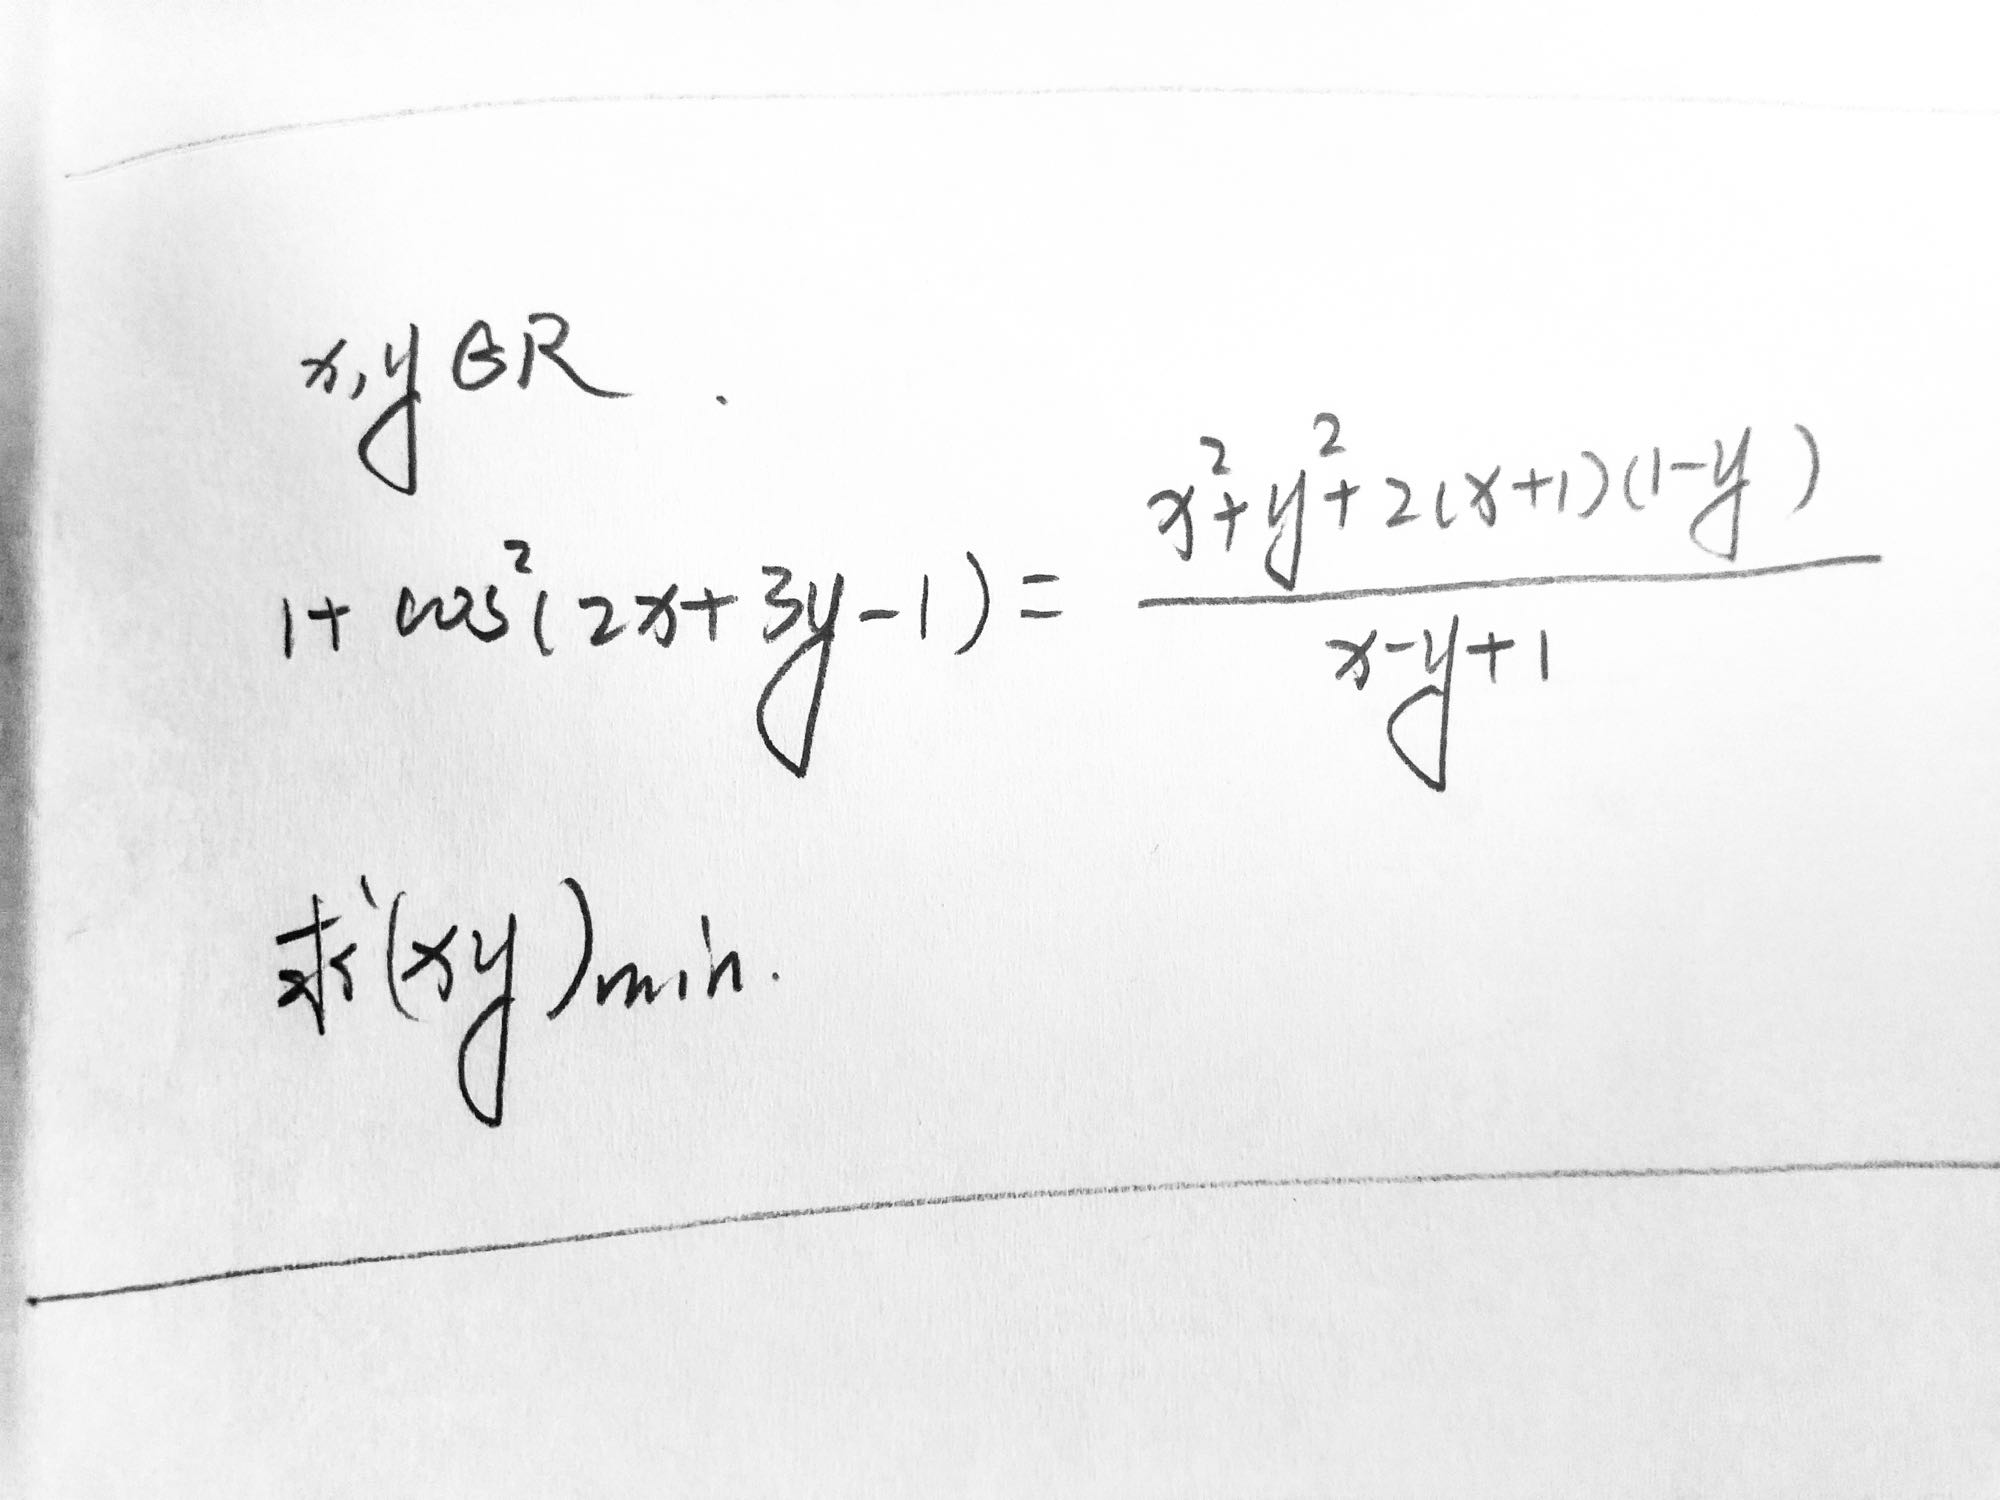 x,y∈R.
1+cos²(2x+3y-1)=\frac{x²+y²+2(x+1)(1-y)}{x-y+1}
求(xy)min.